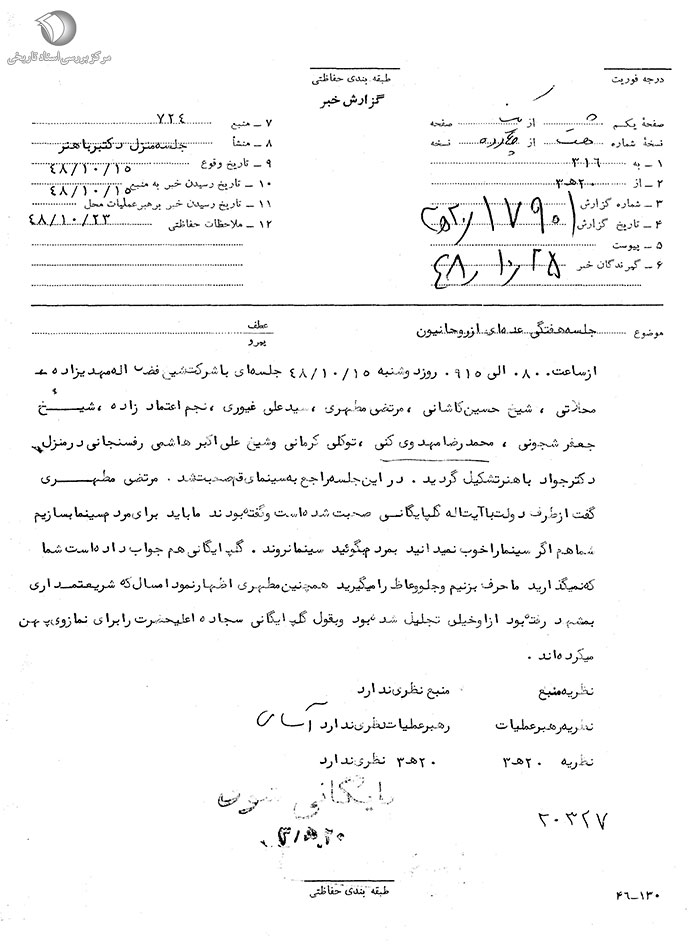 مرکز بررسی اسناد تاریخی
درجه فوریت
طبقه بندی حفاظتی
گزارش خبر
صفحهٔ یکم از صفحه
نسخهٔ شماره هشت از نسخه
۱ ـ به ۳۱۶
۲ ـ از ۲۰هـ۳
۳ ـ شماره گزارش
۴ ـ تاریخ گزارش
۵ ـ پیوست
۶ ـ گیرندگان خبر
۷ ـ منبع ۷۲۴
۸ ـ منشأ جلسه منزل دکتر باهنر
۹ ـ تاریخ وقوع ۴۸/۱۰/۱۵
۱۰ ـ تاریخ رسیدن خبر به منبع ۴۸/۱۰/۱۵
۱۱ ـ تاریخ رسیدن خبر برهبر عملیات محل
۱۲ ـ ملاحظات حفاظتی ۴۸/۱۰/۲۳
موضوع جلسه هفتگی عده‌ای از روحانیون
عطف
پیرو
از ساعت ۰۸۰۰ الی ۰۹۱۵ روز دوشنبه ۴۸/۱۰/۱۵ جلسه‌ای با شرکت شیخ فضل اله مهدیزاده
محلاتی ، شیخ حسین کاشانی ، مرتضی مطهری ، سید علی غیوری ، نجم اعتماد زاده ، شیخ
جعفر شجونی ، محمد رضا مهدوی کنی ، توکلی کرمانی و شیخ علی اکبر هاشمی رفسنجانی در منزل
دکتر جواد باهنر تشکیل گردید . در این جلسه راجع به سینمای قم صحبت شد . مرتضی مطهری
گفت از طرف دولت با آیت اله گلپایگانی صحبت شده است و گفته بودند ما باید برای مردم سینما بسازیم
شما هم اگر سینما را خوب نمیدانید بمردم بگوئید سینما نروند . گلپایگانی هم جواب داده است شما
که نمیگذارید ما حرف بزنیم و جلو وعاظ را میگیرید همچنین مطهری اظهار نمود امسال که شریعتمداری
بمشهد رفته بود از او خیلی تجلیل شده بود و بقول گلپایگانی سجاده اعلیحضرت را برای نماز وی پهن
میکرده‌اند .
نظریه منبع منبع نظری ندارد
نظریه رهبر عملیات رهبر عملیات نظری ندارد آسای
نظریه ۲۰هـ۳ ۲۰هـ۳ نظری ندارد
بایگانی شود
۲۰۳۲۷
طبقه بندی حفاظتی
۴۶-۱۳۰